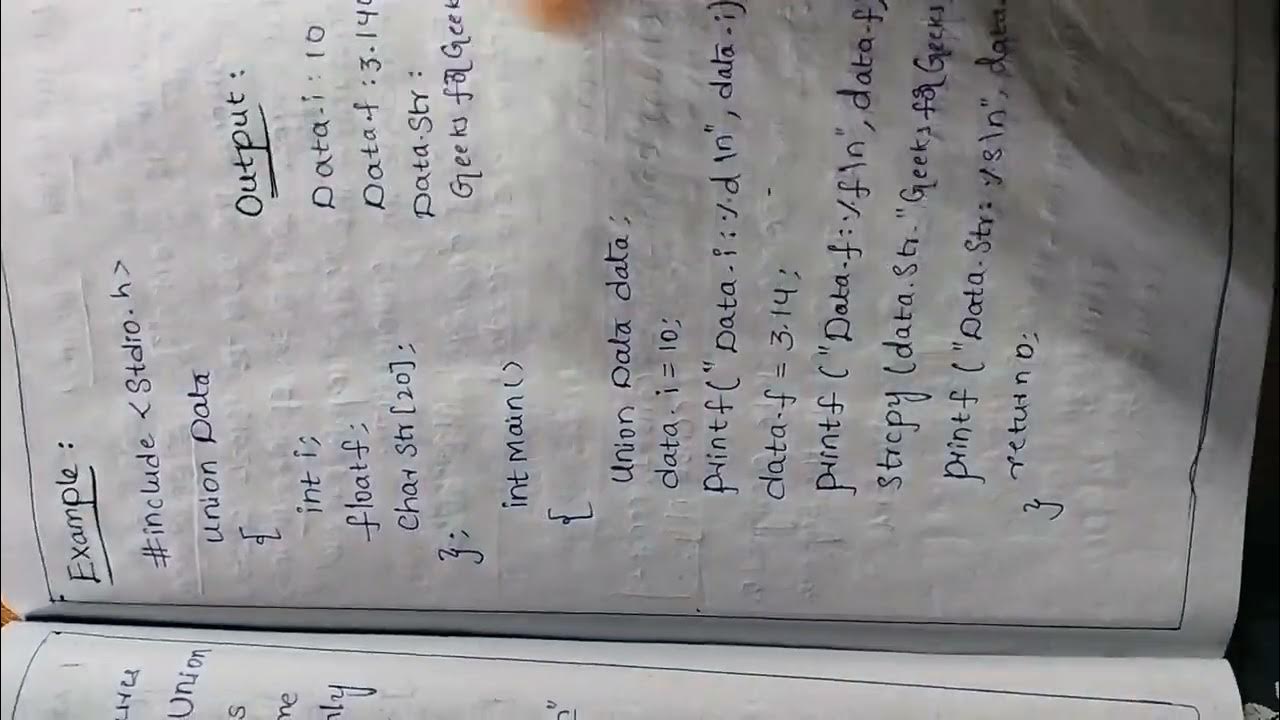 Example:
#include <Stdio.h>
Union Data
{
int i;
float f;
char Str[20];
};
int Main()
{
Union Data data;
data.i=10;
printf("Data.i:%d\n", data.i)
data.f = 3.14;
printf ("Data.f:%f\n", data.f)
Strcpy (data.Str."Geeks for Geeks
printf ("Data.Str:%s\n", data.
return 0;
}
Output:
Data.i: 10
Data.f: 3.140
Data.Str:
Geeks for Geek
Union
s